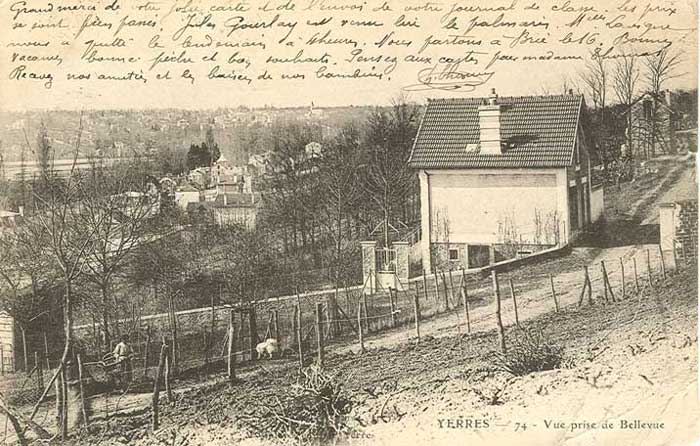 Grand merci de votre jolie carte et de l'envoi de votre journal de classe. Les prix
se sont bien passés Jules Gourlay est venu lire le palmarès. Melle
nous a quitté le lendemain à heures. Nous partons à Brié le 16. Bonnes
vacances bonne pêche et bons souhaits. Pensez aux cartes pour madame
Recevez nos amitiés et les baisers de nos bambins.
YERRES — 74 - Vue prise de Bellevue